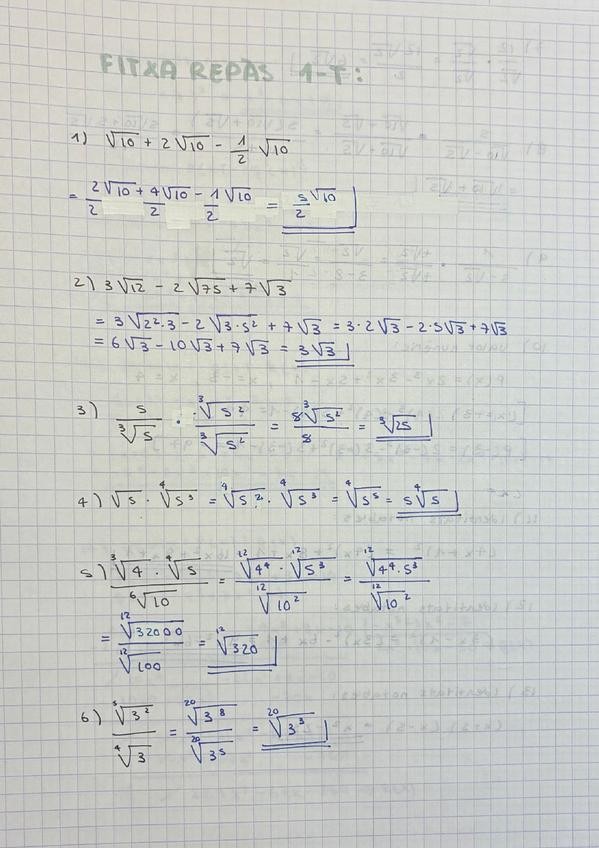 FITXA REPÀS 1-T:
1) √10 + 2√10 - 1/2 √10
= 2√10/2 + 4√10/2 - 1√10/2 = 5√10/2
2) 3√12 - 2√75 + 7√3
= 3√(2²·3) - 2√(3·5²) + 7√3 = 3·2√3 - 2·5√3 + 7√3
= 6√3 - 10√3 + 7√3 = 3√3
3) 5/∛5 · ∛5²/∛5² = 8∛5²/8 = ∛25
4) √5 · ∜5³ = ∜5² · ∜5³ = ∜5⁵ = 5∜5
5) (∛4 · ∜5)/⁶√10 = (¹²√4⁴ · ¹²√5³)/¹²√10² = ¹²√(4⁴·5³)/¹²√10²
= ¹²√32000/¹²√100 = ¹²√320
6) ⁵√3²/∜3 = ²⁰√3⁸/²⁰√3⁵ = ²⁰√3³